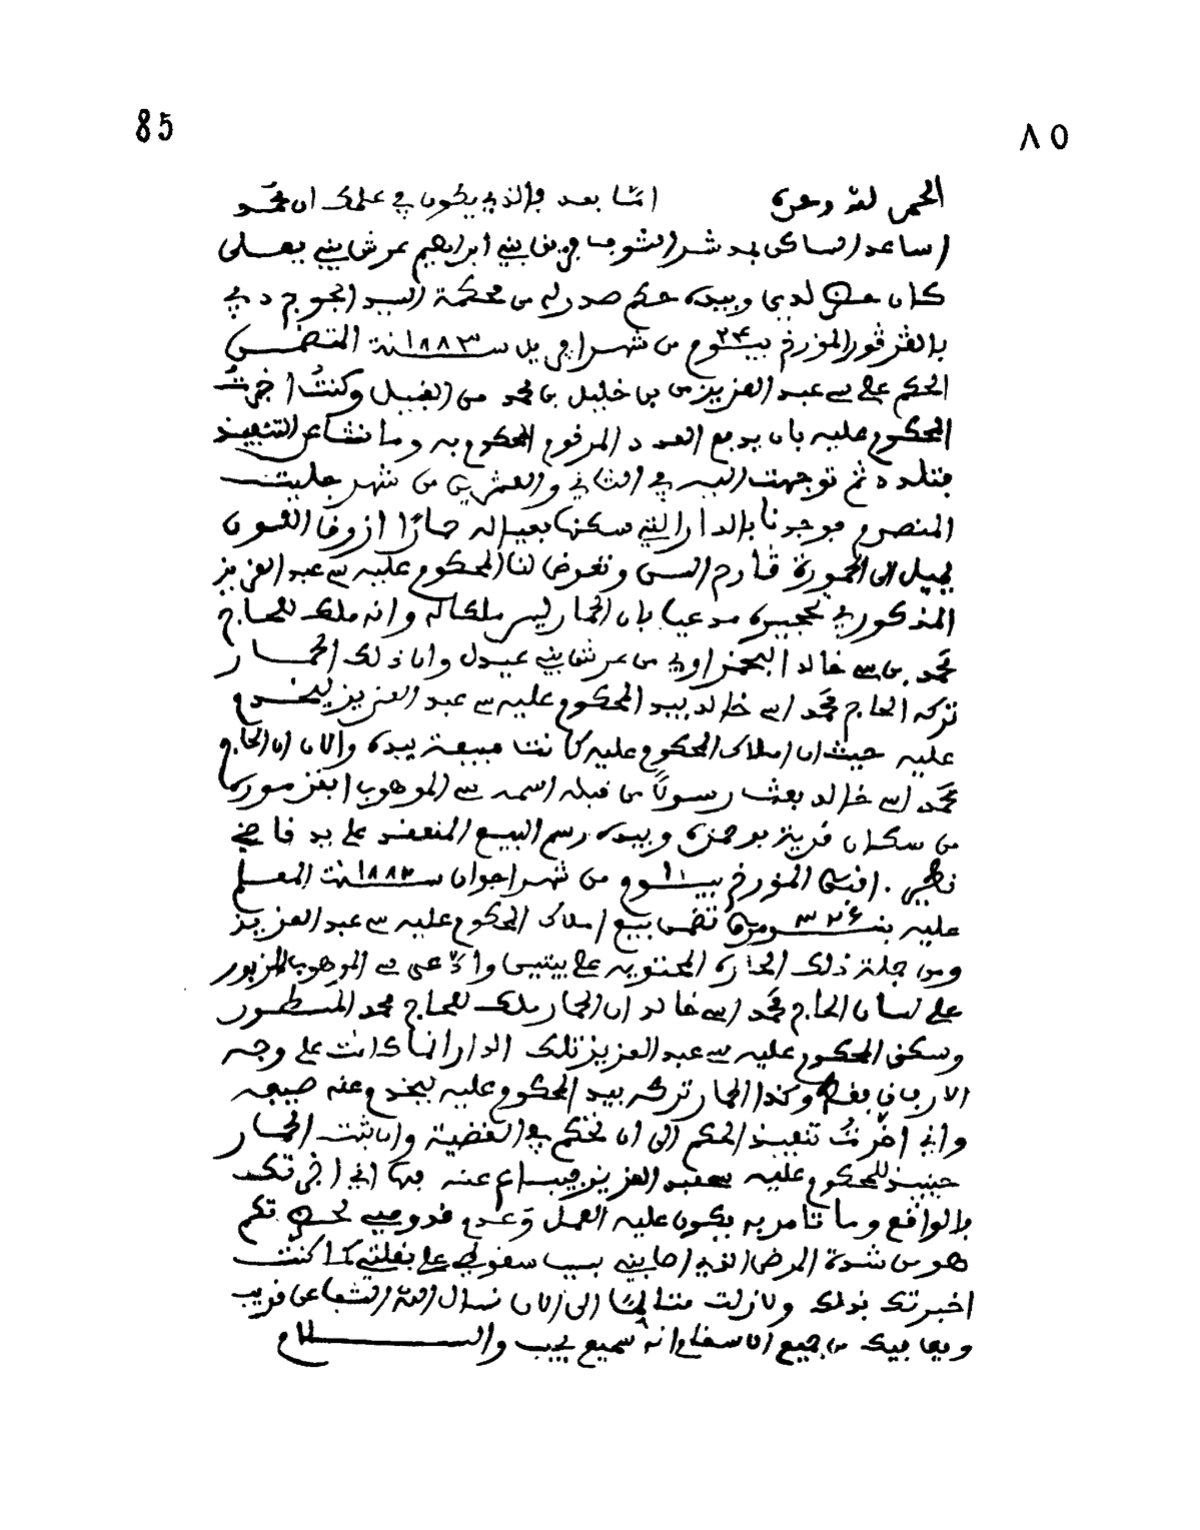 85
٨٥
الحمد لله وحده اما بعد فالذي يكون في علمك ان محمد
اساعد الساكن بدشر الشرفا فريق بني ابراهيم عرش بني يعلى
كان حضر لدي وبيده حكم صدر له من محكمة السيد الجوج دبي
بالقرقور المؤرخ بـ٢٤ـيوم من شهر افريل سنة ١٨٨٣ المتضمن
الحكم على سي عبد العزيز من بن خليل بن محمد من القبيل وكنت اخبرت
المحكوم عليه بان يدفع العدد المرفوع المحكوم به وما نشا عن التنفيذ
فتلدد ثم توجهت اليه في الثاني والعشرين من شهر جليت
المنصرم فوجدنا بالدار التي سكنها بعياله حمارًا ازرق اللون
يميل الى الحمورة قارح السن وتعرض لنا المحكوم عليه سي عبد العزيز
المذكور في تحجيره مدعيا بان الحمار ليس ملكا له وانه ملك للحاج
محمد بن سي خالد البحنراوي من عرش بني عيدل وان ذلك الحمار
تركه الحاج محمد اسي خالد بيد المحكوم عليه سي عبد العزيز ليخدم
عليه حيث ان املاك المحكوم عليه كانت مبيعة بيده والان ان الحاج
محمد اسي خالد بعث رسولا من قبله اسمه سي الموهوب
من سكان قرية بوحمزة وبيده رسم البيع المنعقد على يد قاضي
المؤرخ بـ١١ـيوم من شهر اجوان سنة ١٨٨٢ المعلم
عليه بنمرة ٣٢٦ تضمن بيع املاك المحكوم عليه سي عبد العزيز
ومن جملة ذلك الحارة المحتوية على بيتين وادعى سي الموهوب المزبور
على لسان الحاج محمد اسي خالد ان الحمار ملك للحاج محمد المسطور
وسكنى المحكوم عليه سي عبد العزيز تلك الدار انما كانت على وجه
الارفاق فقط وكذا الحمار تركه بيد المحكوم عليه ليخدم عنه ضيعه
واني اخرت تنفيذ الحكم الى ان نحكم في القضية وان ثبت الحمار
حينيذ للمحكوم عليه سي عبد العزيز فيباع عنه فها اني اخبرتك
بالواقع وما تامر به يكون عليه العمل وعدم قدومي لحضرتكم
هو من شدة المرض الذي اصابني بسبب سقوطي على بغلتي كما كنت
اخبرتك بذلك ولا زلت متالما الى الان نسال الله الشفا عن قريب
ويعافيك من جميع الاسقام انه سميع مجيب والسلام